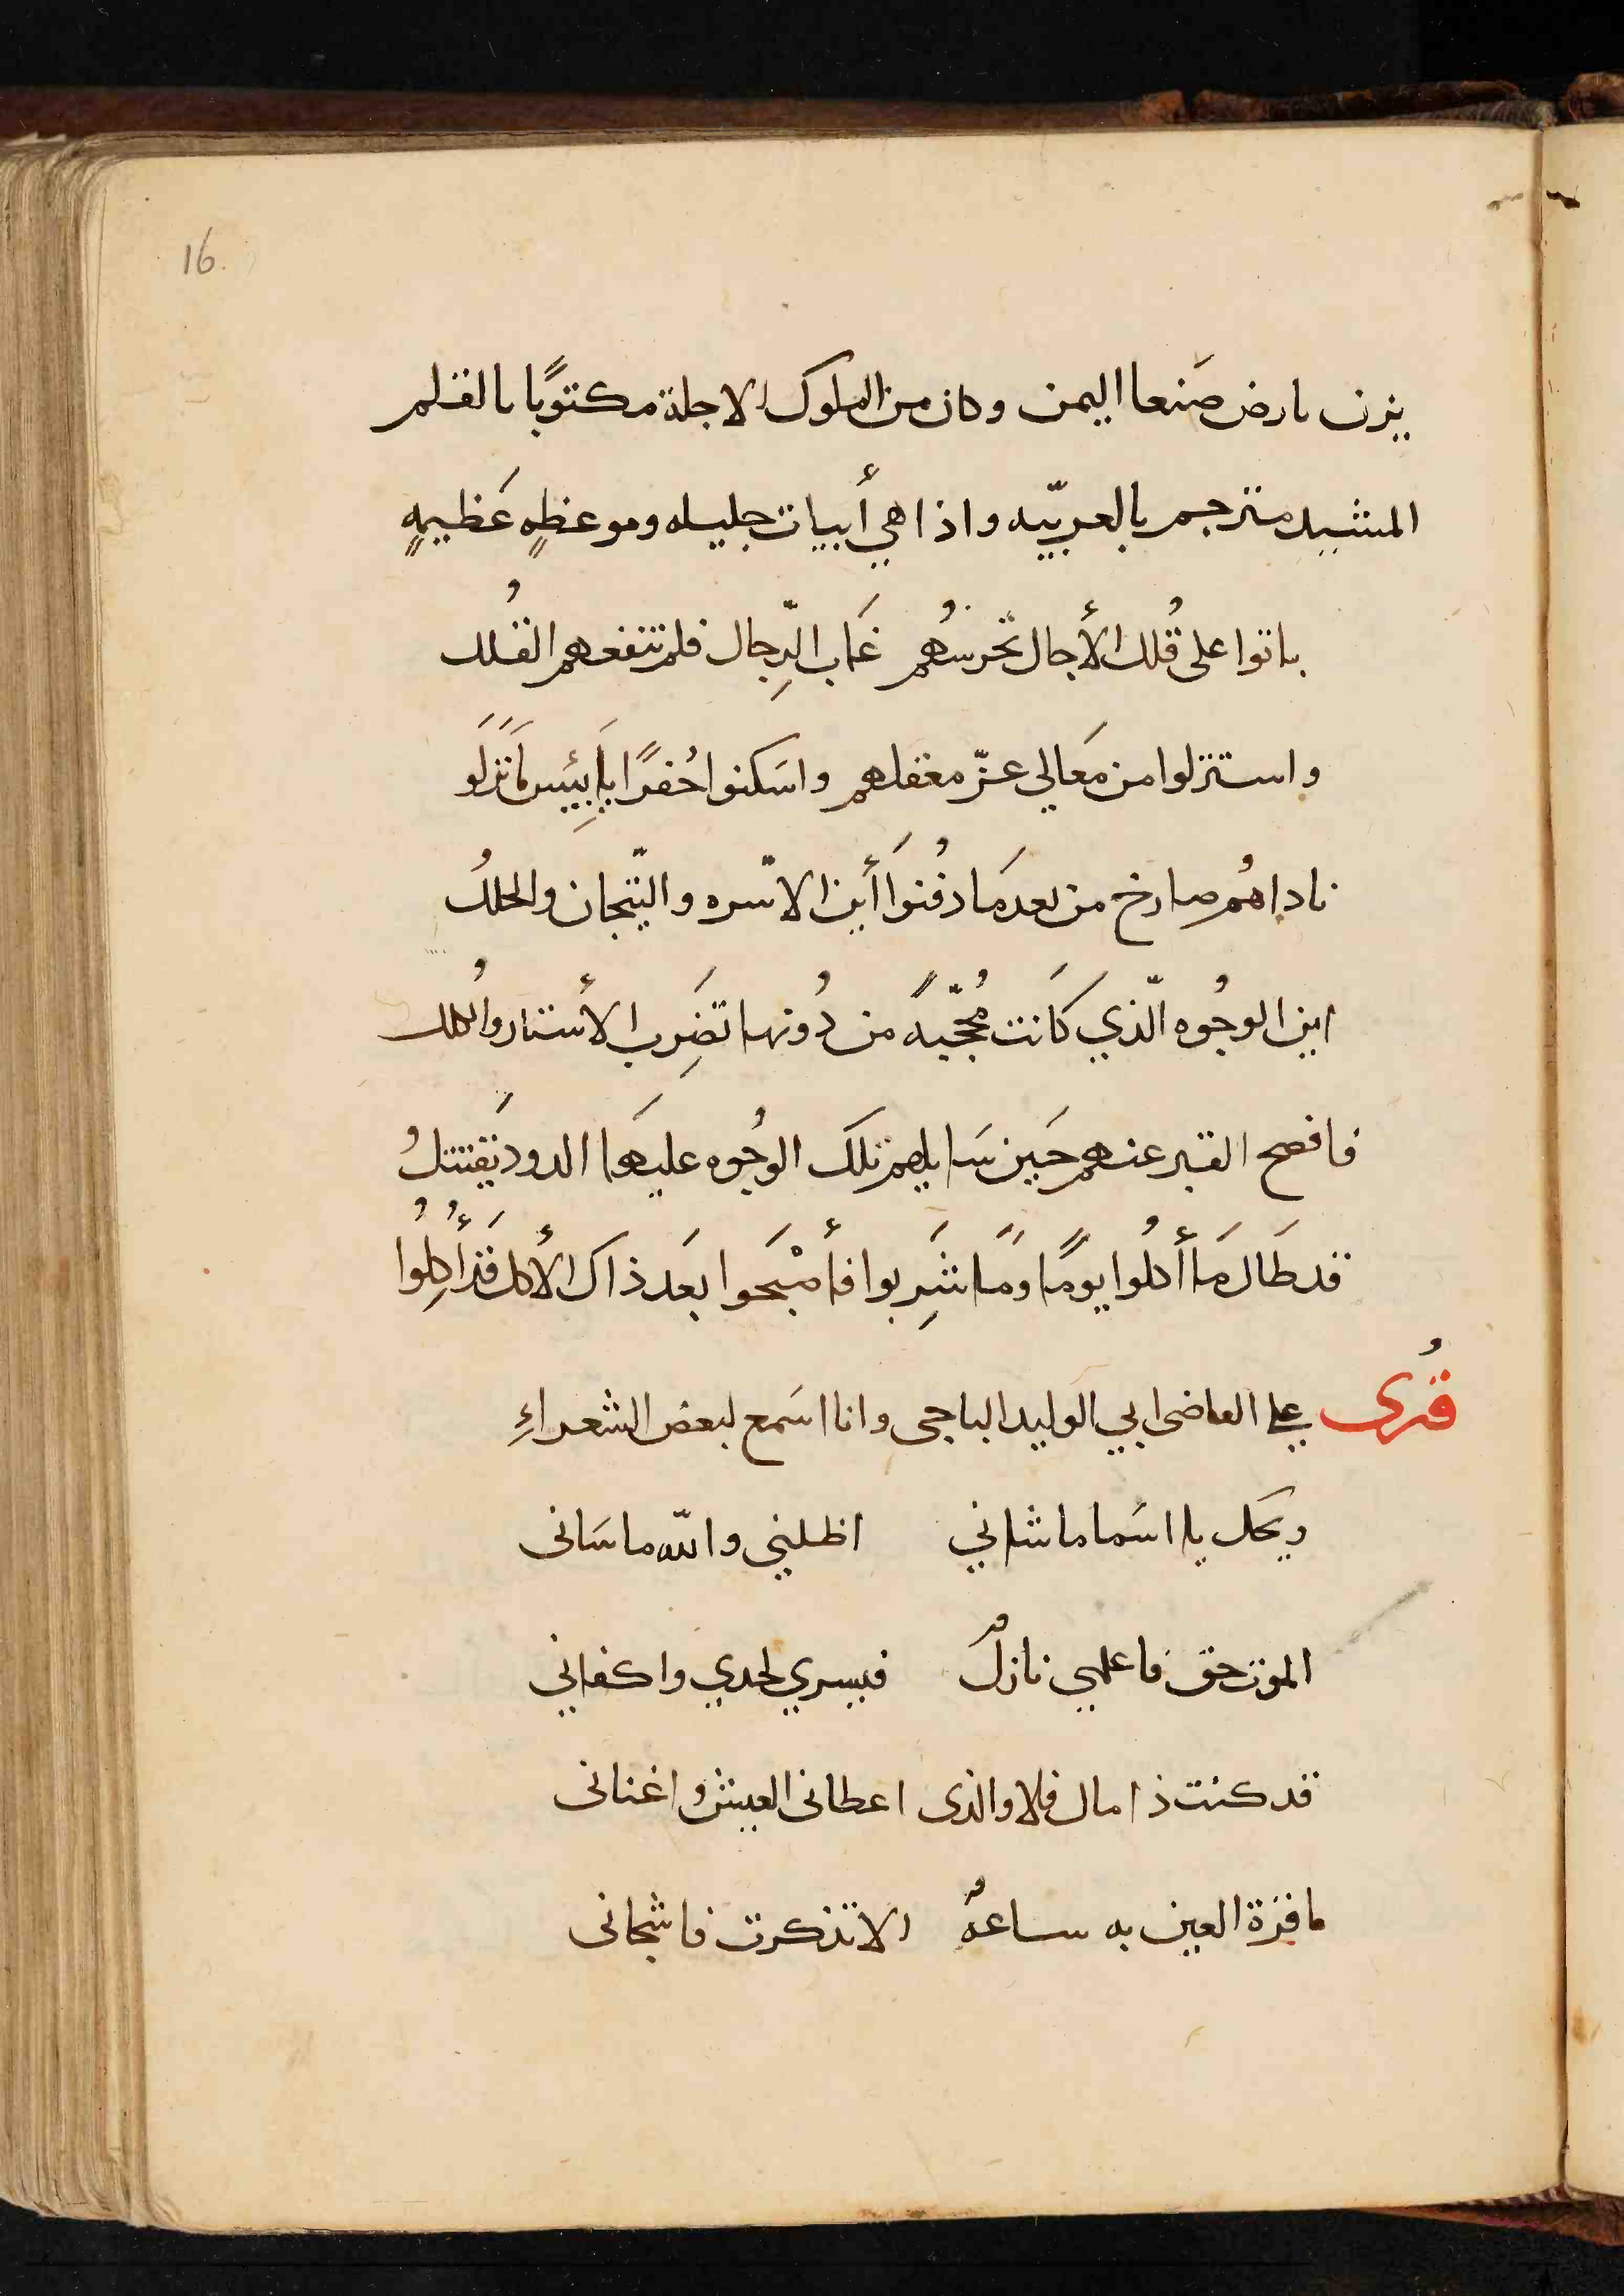 16
يزن بارض صَنعا اليمن وكان من الملوك الاجلة مكتوبًا بالقلم
المشيد مترجم بالعربيّه واذا هي أبيات جليله وموعظهٍ عَظيمهٍ
باتوا على قُلل الأجال تحرسُهم غَلب الرِّجال فلم تنفعهم القُلل
واستنزلوا من مَعالي عزّ معقلهم واسَكنوا حُفرًا يا بِئيس مَا نزلَو
ناداهُم صارخ من بعد مَا دفُنَوا أين الاسّره والتّيجان والحللُ
اين الوجُوه الّذي كَانت مُحجّبهً من دُونها تضَرِب الأستار والكُلل
فافصح القبر عنهم حَين سَايلهم تلكَ الوجُوه عليهَا الدود يَقتتلُ
قد طَال مَا أكلُوا يومًا ومَا شَرِبوا فأصْبَحوا بعَد ذاك الأكل قَد أُكِلُوا
قُرى على القاضى ابي الوليد الباجى وانا اسَمع لبعض الشعراءِ
ويحَك يا اسَما ما شاني اظلنى والله ما سَانى
الموت حق فاعلمي نازلٌ فيسري لحدي واكفاني
قد كنت ذا مال فلا والذى اعطانى العيش واغنانى
ما قرة العين به ساعهٌ الا تذكرت فاشجانى